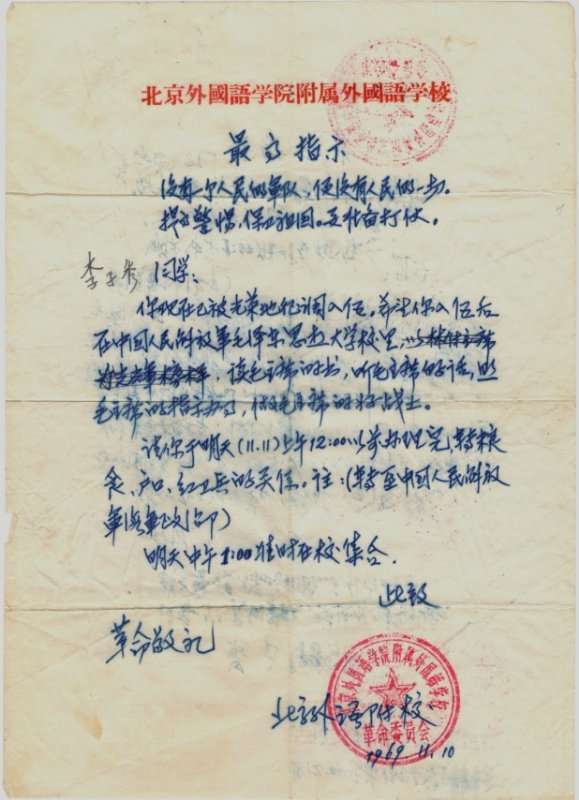 北京外國語学院附属外國語学校
最高指示
没有一个人民的军队,便没有人民的一切。
提高警惕,保卫祖国。要准备打仗。
李子秀 同学:
你现在已被光荣地批调入伍。希望你入伍后
在中国人民解放军毛泽东思想大学校里,
读毛主席的书,听毛主席的话,照
毛主席的指示办事,做毛主席的好战士。
请你于明天(11.11)上午12:00以前办理完,转粮
食、户口、红卫兵的关系。注:(转至中国人民解放
军海军政治部)
明天中午1:00准时在校集合.
此致
革命敬礼
北京外语附校
1969.11.10
北京外國語学院附属外國語学校
革命委员会